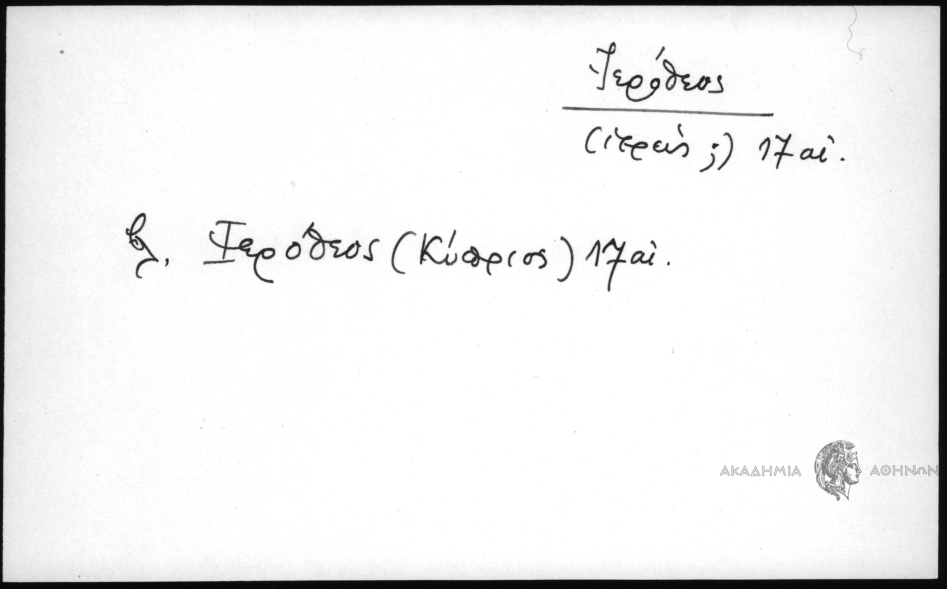 Ἱερόθεος
(ἱερεύς ;) 17 αἰ.
βλ. Ἱερόθεος (Κύπριος) 17 αἰ.
ΑΚΑΔΗΜΙΑ ΑΘΗΝΩΝ